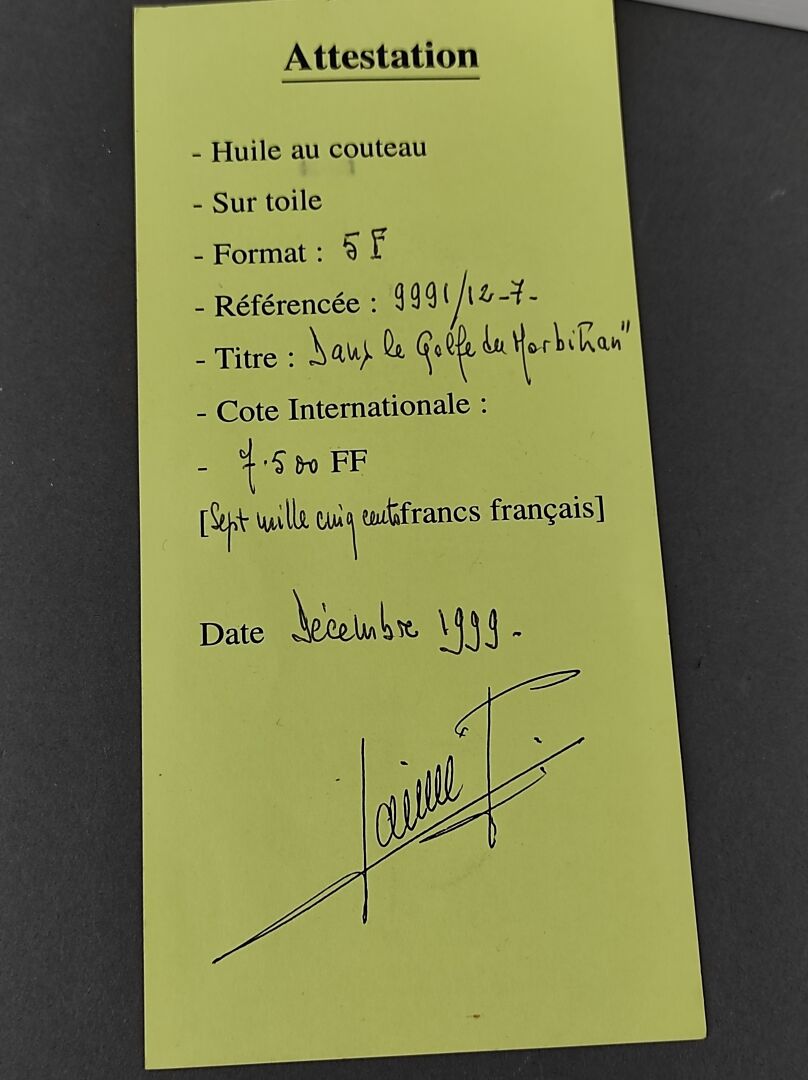 Attestation
- Huile au couteau
- Sur toile
- Format : 5 F
- Référencée : 9991/12-7-
- Titre : Dans le Golfe du Morbihan"
- Cote Internationale :
- 7.500 FF
[Sept mille cinq cents francs français]
Date Décembre 1999.